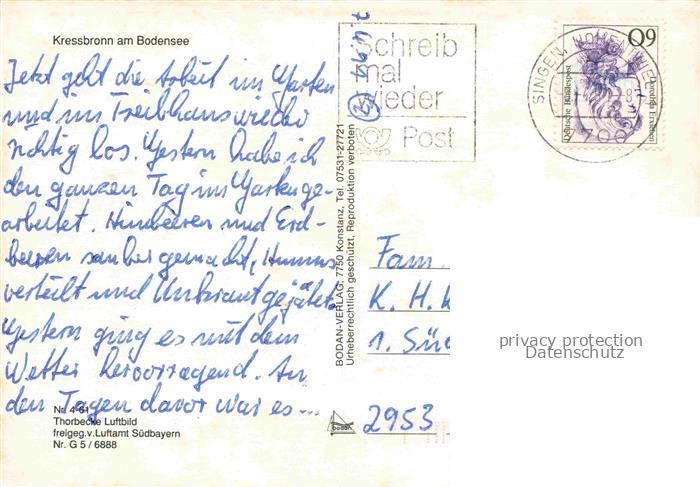 Kressbronn am Bodensee
Jetzt geht die Arbeit im Garten
und im Treibhaus wieder
richtig los. Gestern habe ich
den ganzen Tag im Garten ge-
arbeitet. Himbeeren und Erd-
beeren sauber gemacht, Humus
verteilt und Unkraut gejätet.
Gestern ging es mit dem
Wetter hervorragend. An
den Tagen davor war es ...
Nr. 4-61
Thorbecke Luftbild
freigeg.v.Luftamt Südbayern
Nr. G 5 / 6888
BODAN-VERLAG, 7750 Konstanz, Tel. 07531-27721
Urheberrechtlich geschützt, Reproduktion verboten
bodan
Schreib
mal
wieder
Post
SINGEN
60
Deutsche Bundespost
Dorothea Erxleben
Fam.
K. H. K
1. Süd
2953
privacy protection
Datenschutz